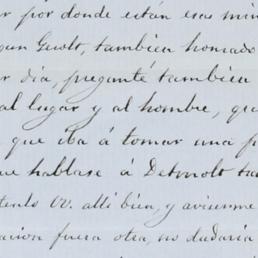 por donde están esas min
tambien honrado
dia, pregunté tambien
al lugar y al hombre, qu
que iba á tomar una p
hablase á Detmolt ta
VV. alli bien, y avisenme
fuera otra, no dudaria